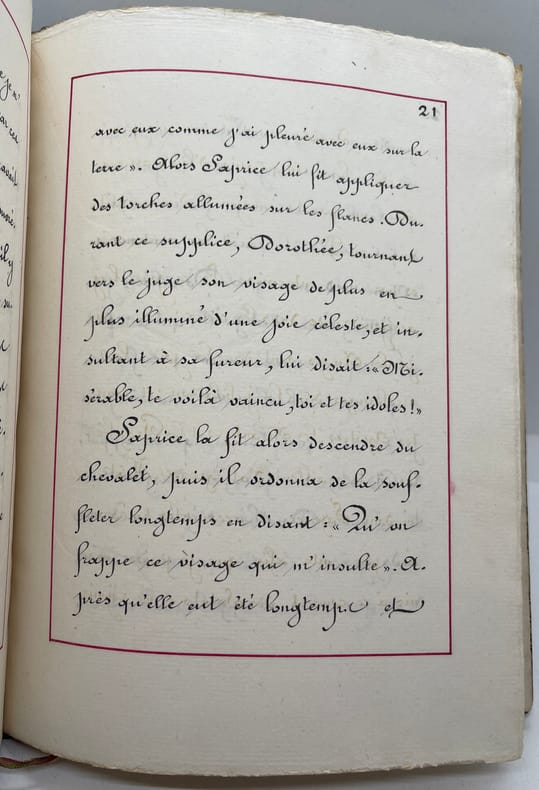 21
avec eux comme j'ai pleuré avec eux sur la
terre ». Alors Saprice lui fit appliquer
des torches allumées sur les flancs. Du-
rant ce supplice, Dorothée, tournant
vers le juge son visage de plus en
plus illuminé d'une joie céleste, et in-
sultant à sa fureur, lui disait : « Mi-
sérable, te voilà vaincu, toi et tes idoles ! »
Saprice la fit alors descendre du
chevalet, puis il ordonna de la souf-
fleter longtemps en disant : « Qu'on
frappe ce visage qui m'insulte ». A-
près qu'elle eut été longtemps et